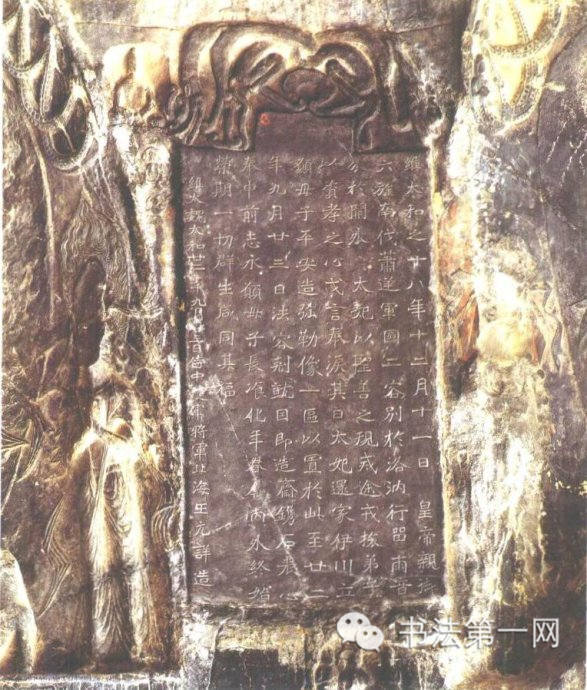 維太和之十八年十二月十一日 皇帝親御
六旌南伐蕭逆軍國二容別於洛汭行留兩音
分於闕外 太妃以聖善之規戒途戎旅弟子
以資孝之心戈言奉淚其日太妃還家伊川立
願母子平安造彌勒像一區以置於此至廿二
年九月廿三日法容剋就因即造齋鐫石表心
奉申前志永願母子長飡化年眷屬內外終始
榮期一切群生咸同其福
維大魏太和廿二年九月廿三日侍中護軍將軍北海王元詳造
书法第一网